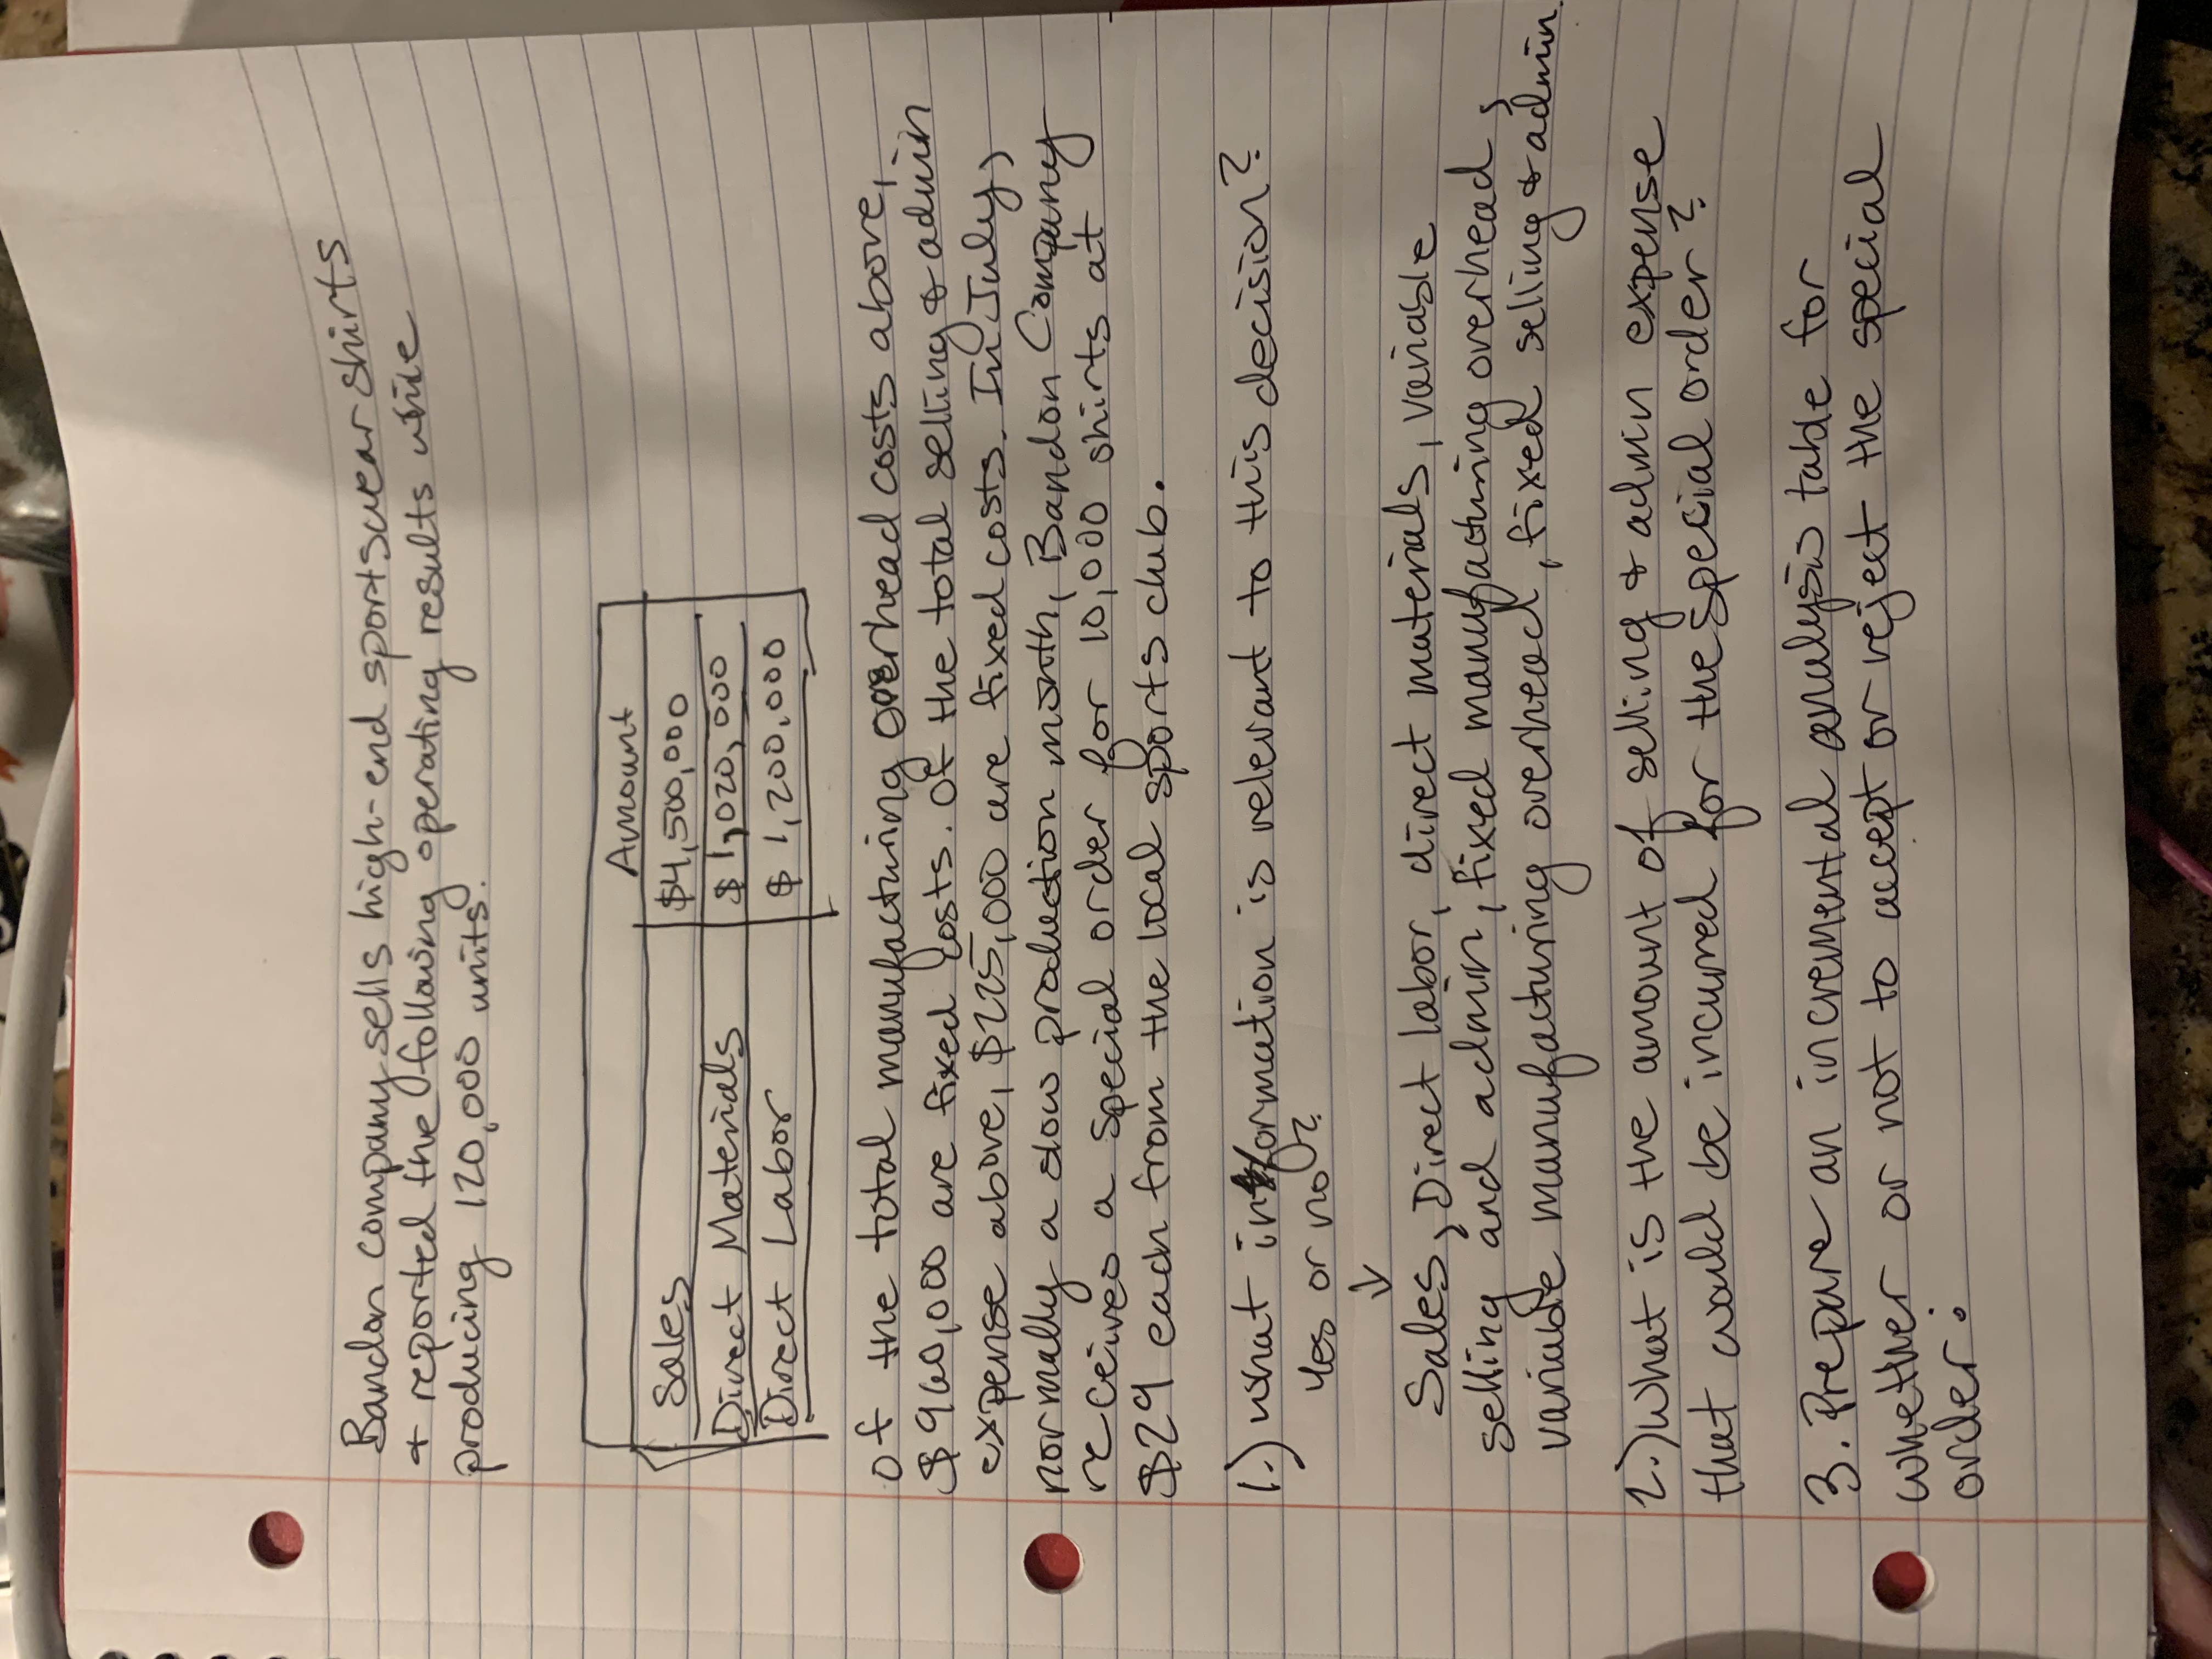 Bandon company sells high-end sportswear shirts
+ reported the following operating results while
producing 120,000 units.
Amount
Sales $4,500,000
Direct Materials $1,020,000
Direct Labor $1,200,000
Of the total manufacturing overhead costs above,
$960,000 are fixed costs. Of the total selling & admin
expense above, $225,000 are fixed costs. In July,
normally a slow production month, Bandon Company
receives a special order for 10,000 shirts at
$29 each from the local sports club.
1.) What information is relevant to this decision?
Yes or no?
↓
Sales, Direct labor, direct materials, variable
selling and admin, fixed manufacturing overhead,
variable manufacturing overhead, fixed selling & admin.
2.) What is the amount of selling & admin expense
that would be incurred for the special order?
3. Prepare an incremental analysis table for
whether or not to accept or reject the special
order.